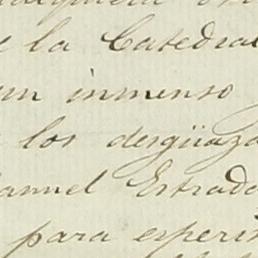 e la Catedral
un inmenso
los desgüaza
anuel Estrada
para esperi